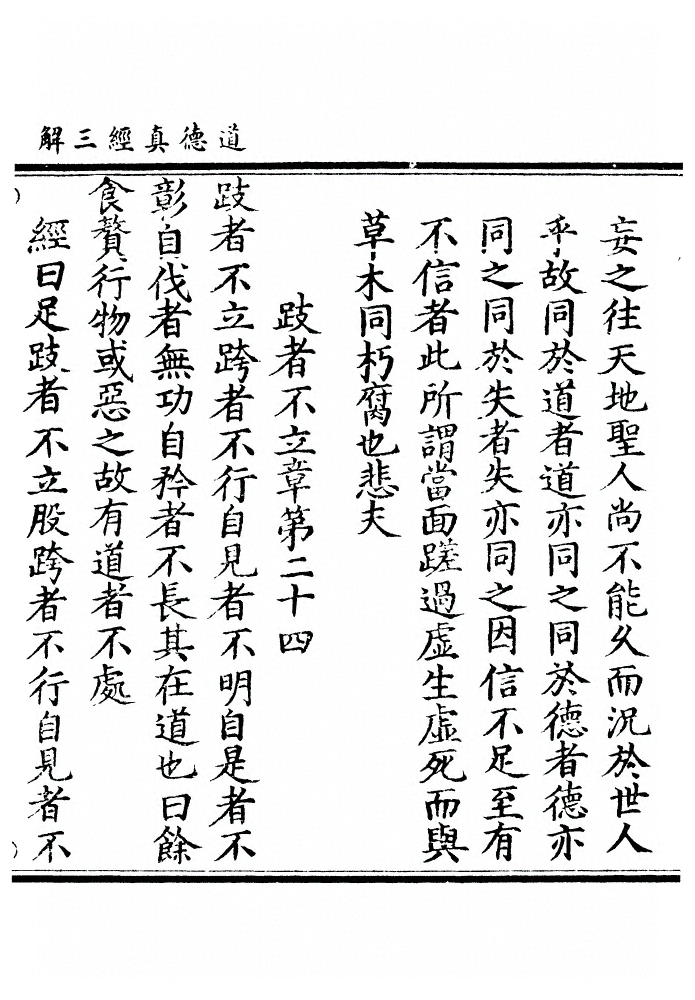 道德真經三解
妄之往天地聖人尚不能久而況於世人
乎故同於道者道亦同之同於德者德亦
同之同於失者失亦同之因信不足至有
不信者此所謂當面蹉過虛生虛死而與
草木同朽腐也悲夫
跂者不立章第二十四
跂者不立跨者不行自見者不明自是者不
彰自伐者無功自矜者不長其在道也曰餘
食贅行物或惡之故有道者不處
經曰足跂者不立股跨者不行自見者不